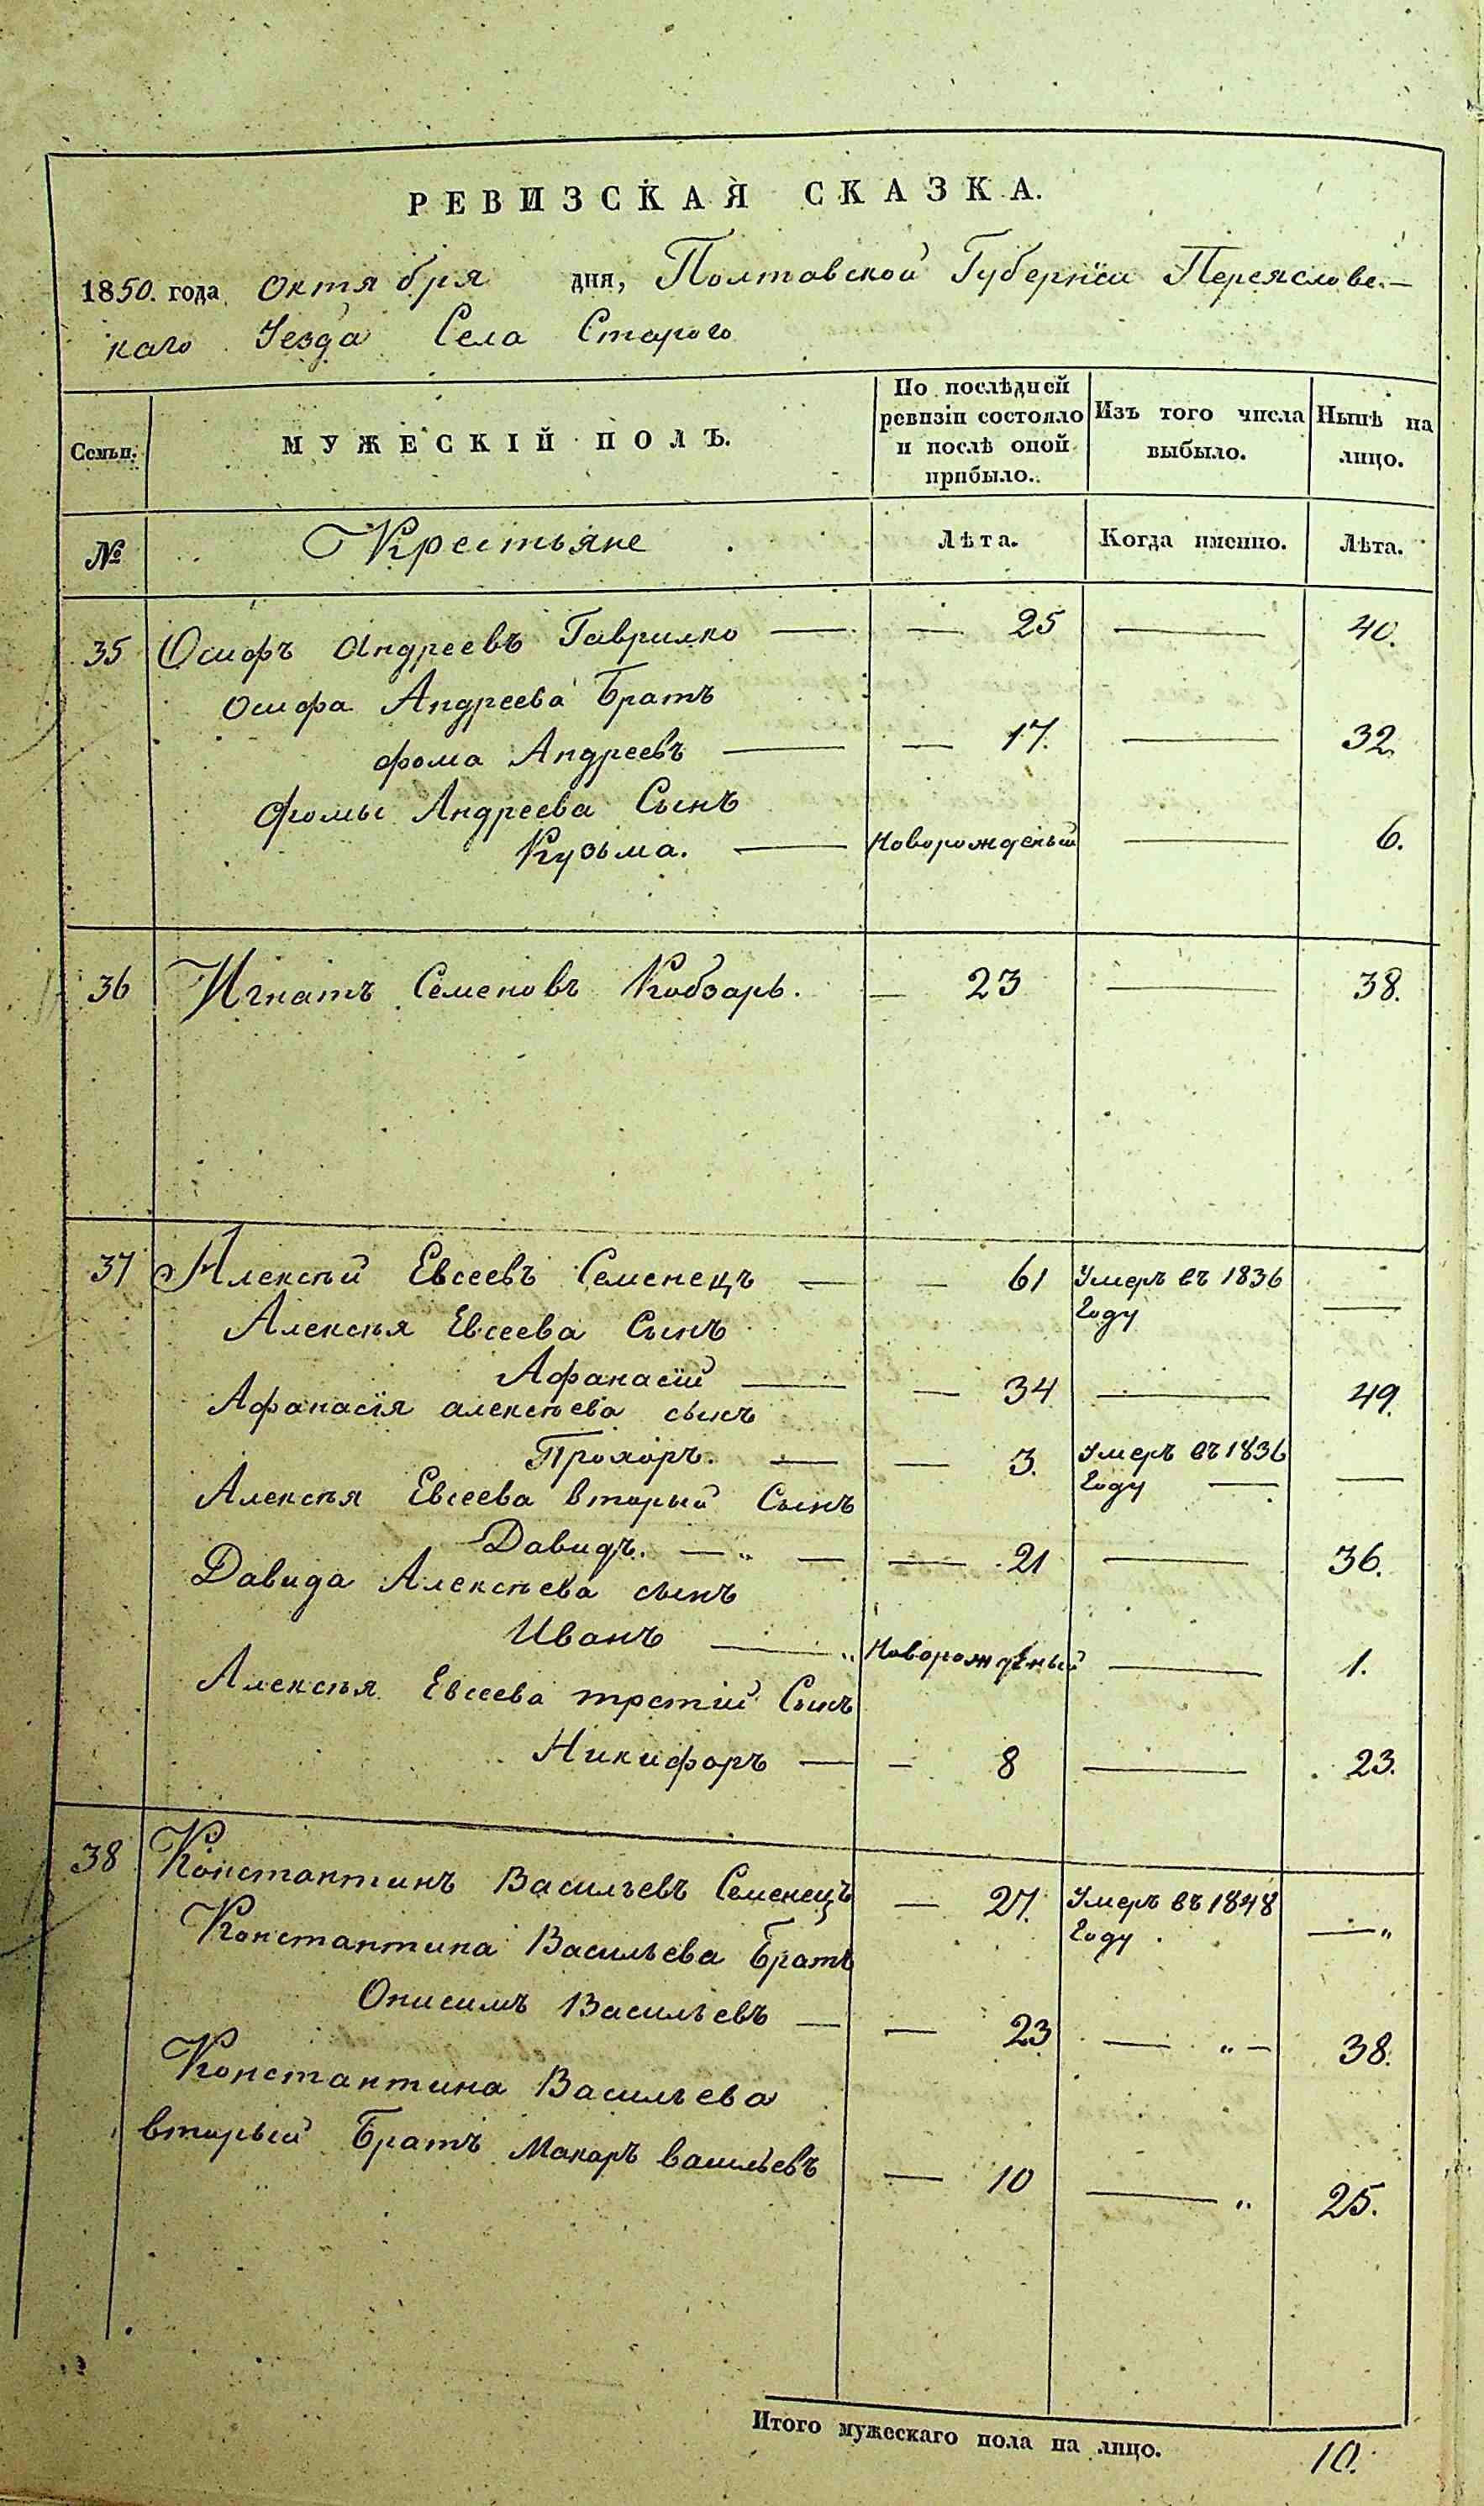 РЕВИЗСКАЯ СКАЗКА.
1850. года октября дня, Полтавской Губернïи Переяслове.-
каго Уезда Села Старого
Семьи. МУЖЕСКІЙ ПОЛЪ. По послѣдней ревизіи состояло и послѣ оной прибыло. Изъ того числа выбыло. Нынѣ на лицо.
№ Крестьяне Лѣта. Когда именно. Лѣта.
35 Осифъ Андреевъ Гаврилко — — 25 — 40.
Осифа Андреева Братъ
фома Андреевъ — — 17. — 32.
Фомы Андреева Сынъ
Кузьма. — Новорожденый — 6.
36 Игнатъ Семеновъ Кобзарь. — 23 — 38.
37 Алексѣй Евсеевъ Семенецъ — — 61 Умеръ въ 1836 —
Году
Алексѣя Евсеева Сынъ
Афанасïй — — 34 — 49.
Афанасïя алексѣева сынъ
Прохоръ. — — 3. Умеръ въ 1836 —
Году —
Алексѣя Евсеева вторый Сынъ
Давидъ. — „ — — 21 — 36.
Давида Алексѣева сынъ
Иванъ — „ Новорожденый — 1.
Алексѣя Евсеева третïй Сынъ
Никифоръ — — 8 — 23.
38 Константинъ Васильевъ Семенецъ — 27. Умеръ въ 1848 — „
Году.
Константина Васильева Братъ
Онисимъ Васильевъ — — 23 — „ — 38.
Константина Васильева
вторый Братъ Макаръ васильевъ — 10 — „ 25.
Итого мужескаго пола на лицо. 10.